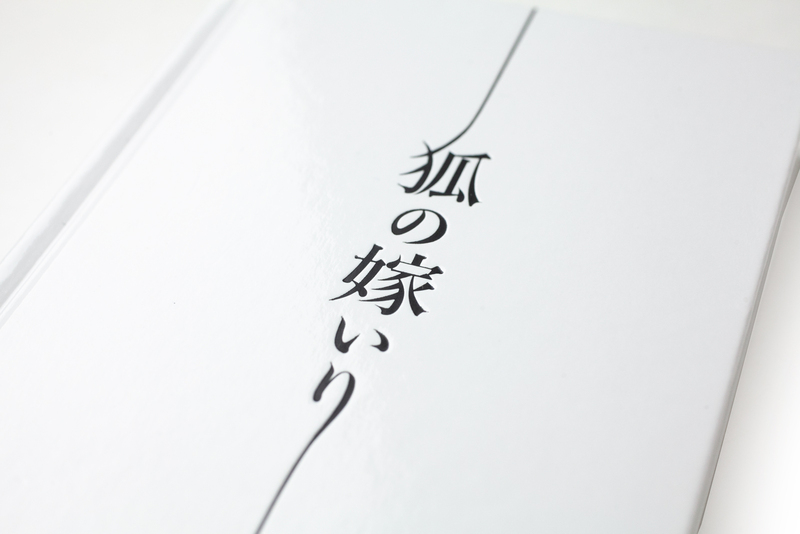 狐の嫁いり